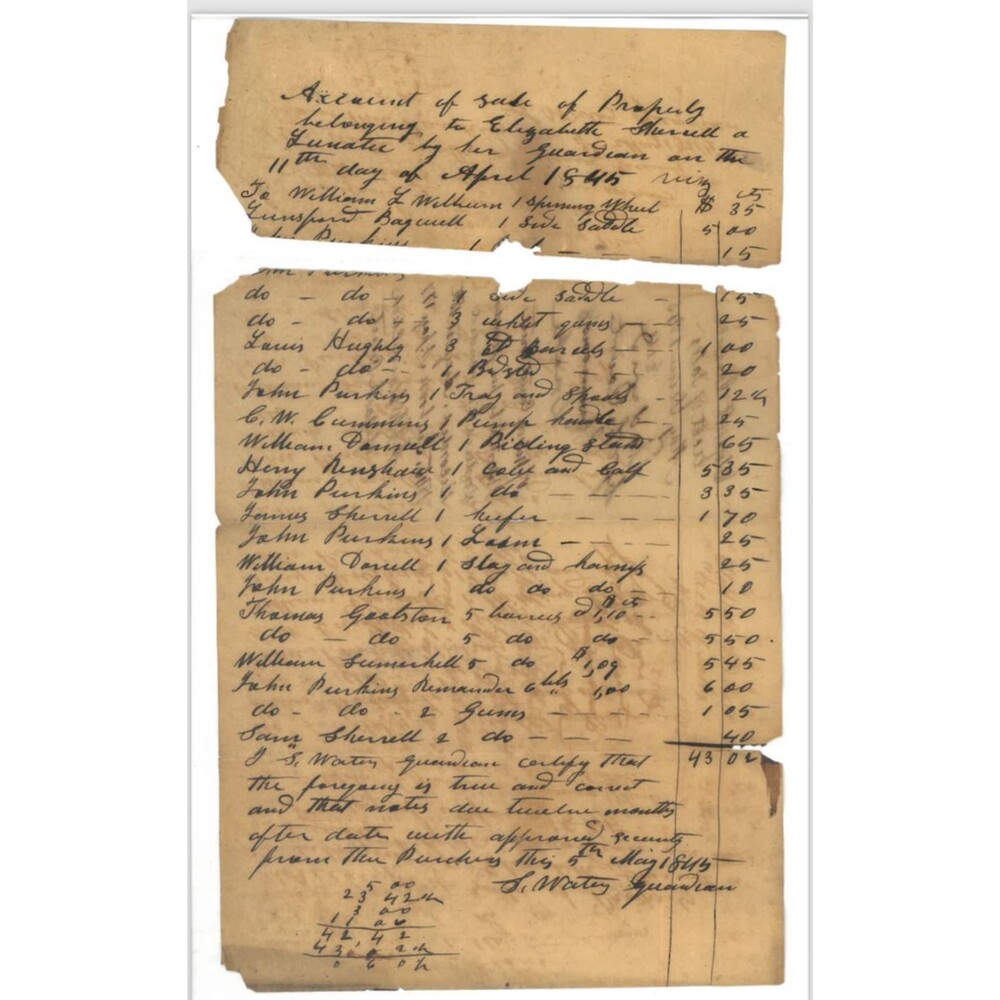 Account of sale of Property
belonging to Elizabeth Sherrell a
Lunatic by her Guardian on the
11th day of April 1845 viz
$ cts
To William L Wilburn 1 spinning Wheel $ 35
Lunsford Bagwell 1 Side Saddle 5 00
John Purkins 1 15
do - do - 1 side saddle - 15
do - do - 3 gums - - 25
Louis Hughly 3 barrels - - 1 00
do - do - 1 Bedsted - - 20
John Purkins 1 Tray and Spools - 12 ½
C. W. Cummins 1 Pump handle 25
William Dorrell 1 Stand 65
Henry Renshaw 1 Cow and Calf 5 35
John Purkins 1 do - - - - 3 35
James Sherrell 1 heifer - - - - 1 70
John Purkins 1 Loom - - - - 25
William Dorrell 1 Slay and harness 25
John Purkins 1 do do do - - 10
$ cts
Thomas Goolston 5 barrels @ 1,10 - - 5 50
do - do 5 do do - 5 50
William Sumerhell 5 do $1,09 5 45
John Purkins Remainder 6 bbls " 1,00 6 00
do - do - 2 Gums - - - - 1 05
Sam Sherrell 2 do - - - - 40
43 02
I S. Waters guardian certify that
the foregoing is true and correct
and that notes due twelve months
after date with approved security
from the Purchers this 5th May 1845
S. Waters Guardian
5 00
23 42 ½
3 00
11 00
42,42
43 0 2 ½
0 6 0 ½